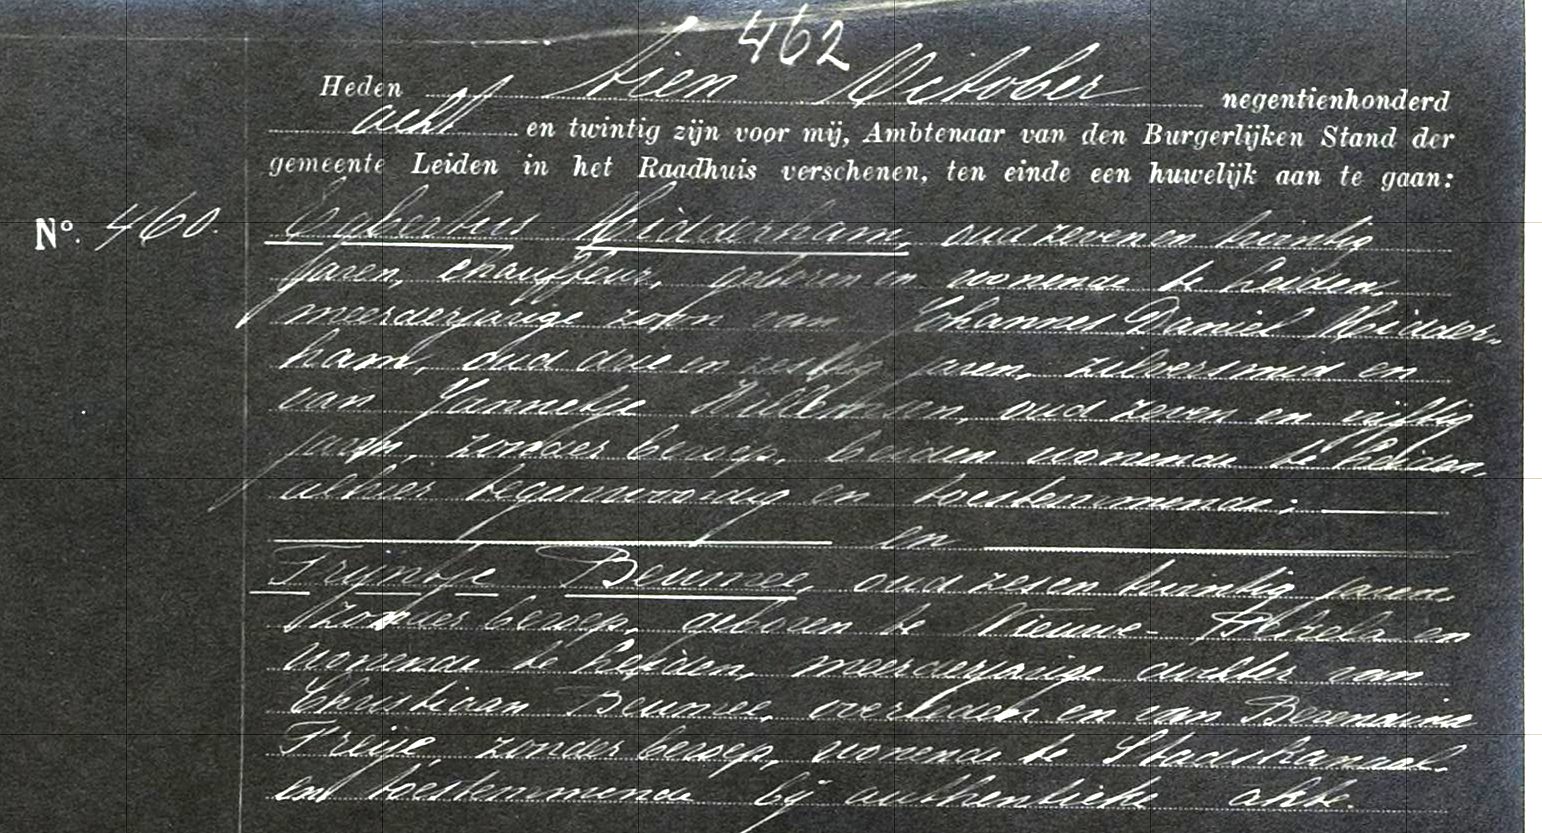 462
Heden tien October negentienhonderd
acht en twintig zijn voor mij, Ambtenaar van den Burgerlijken Stand der
gemeente Leiden in het Raadhuis verschenen, ten einde een huwelijk aan te gaan:
Nº. 460. Egbertus Ridderham, oud zeven en twintig
jaren, chauffeur, geboren en wonende te Leiden,
meerderjarige zoon van Johannes Daniel Ridder-
ham, oud drie en zestig jaren, zilversmid en
van Jannetje Willemsen, oud zeven en vijftig
jaren, zonder beroep, beiden wonende te Leiden,
alhier tegenwoordig en toestemmende;
en
Trijntje Beumee, oud zes en twintig jaren,
zonder beroep, geboren te Nieuwe- Pekela en
wonende te Leiden, meerderjarige dochter van
Christiaan Beumee, overleden en van Berendina
Freije, zonder beroep, wonende te Stadskanaal
en toestemmende bij authentieke akte.